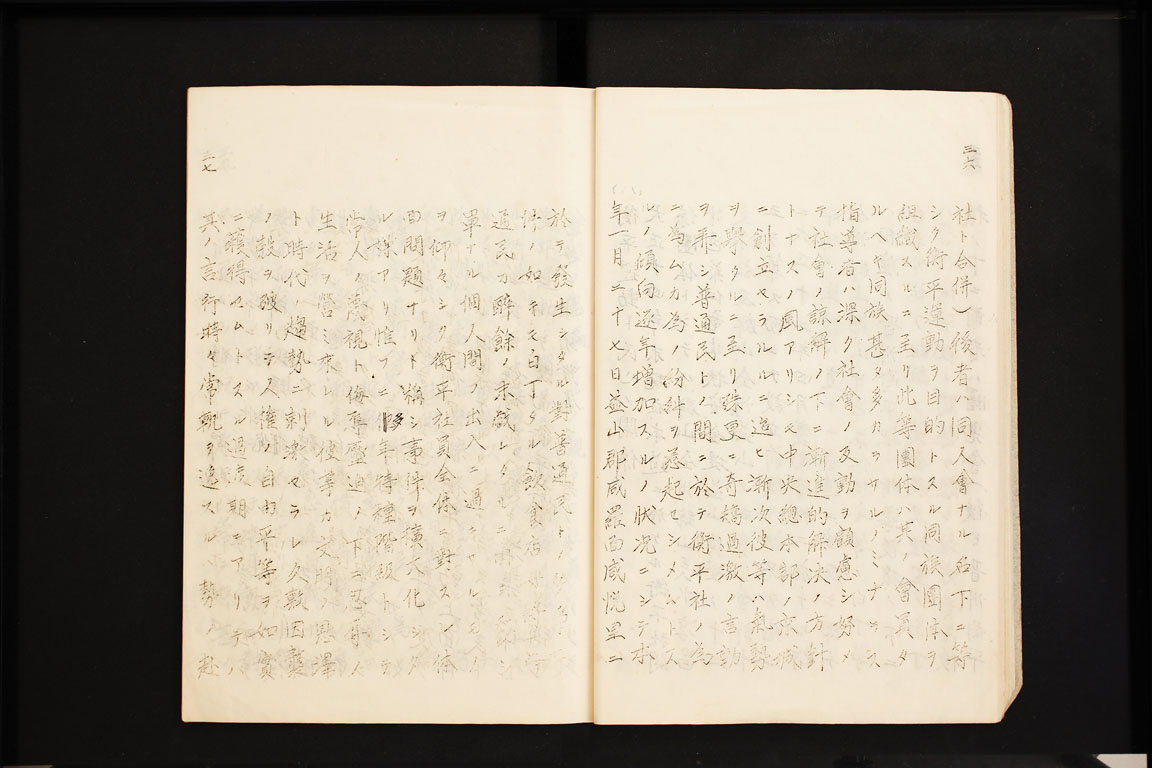 三六
社ト合併）後者ハ同人會ナル名下ニ等
シク衡平運動ヲ目的トスル同族團体ヲ
組織スルニ至リ此等團体ハ其ノ會員タ
ルヘキ同族甚タ多カラサルノミナラス
指導者ハ深ク社會ノ反動ヲ顧慮シ努メ
テ社會ノ諒解ノ下ニ漸進的解決ノ方針
トナスノ風アリシモ中央總本部ノ京城
ニ創立セラルルニ遭ヒ漸次彼等ハ氣勢
ヲ擧クルニ至リ殊更ニ奇矯過激ノ言動
ヲ弄シ普通民トノ間ニ於テ衡平社ノ為
ニ為ムカ為ノ紛糾ヲ惹起セシメムトス
ルノ傾向逐年増加スルノ狀况ニシテ本
年一月二十七日益山郡咸羅面咸悅里ニ
三七
於テ發生シタル對普通民トノ
件ノ如キモ白丁タル飲食店
通民カ醉餘ノ末戲レタルニ
單ナル個人間ノ出入ニ過キサルモノ
ヲ仰々シク衡平社員全体ニ對スル体
面問題ナリト稱シ事件ヲ擴大化シタ
ル嫌アリ惟フニ多年特種階級トシテ
常人ノ蔑視ト侮辱壓迫ノ下ニ忍辱ノ
生活ヲ營ミ來レル彼等カ文明ノ恩澤
ト時代ノ趨勢ニ刺激セラレ久敷因襲
ノ殼ヲ破リテ人權ノ自由平等ヲ如實
ニ獲得セムトスル過渡期ニアリテハ
其ノ言行時々常軌ヲ逸スル勢ノ赴